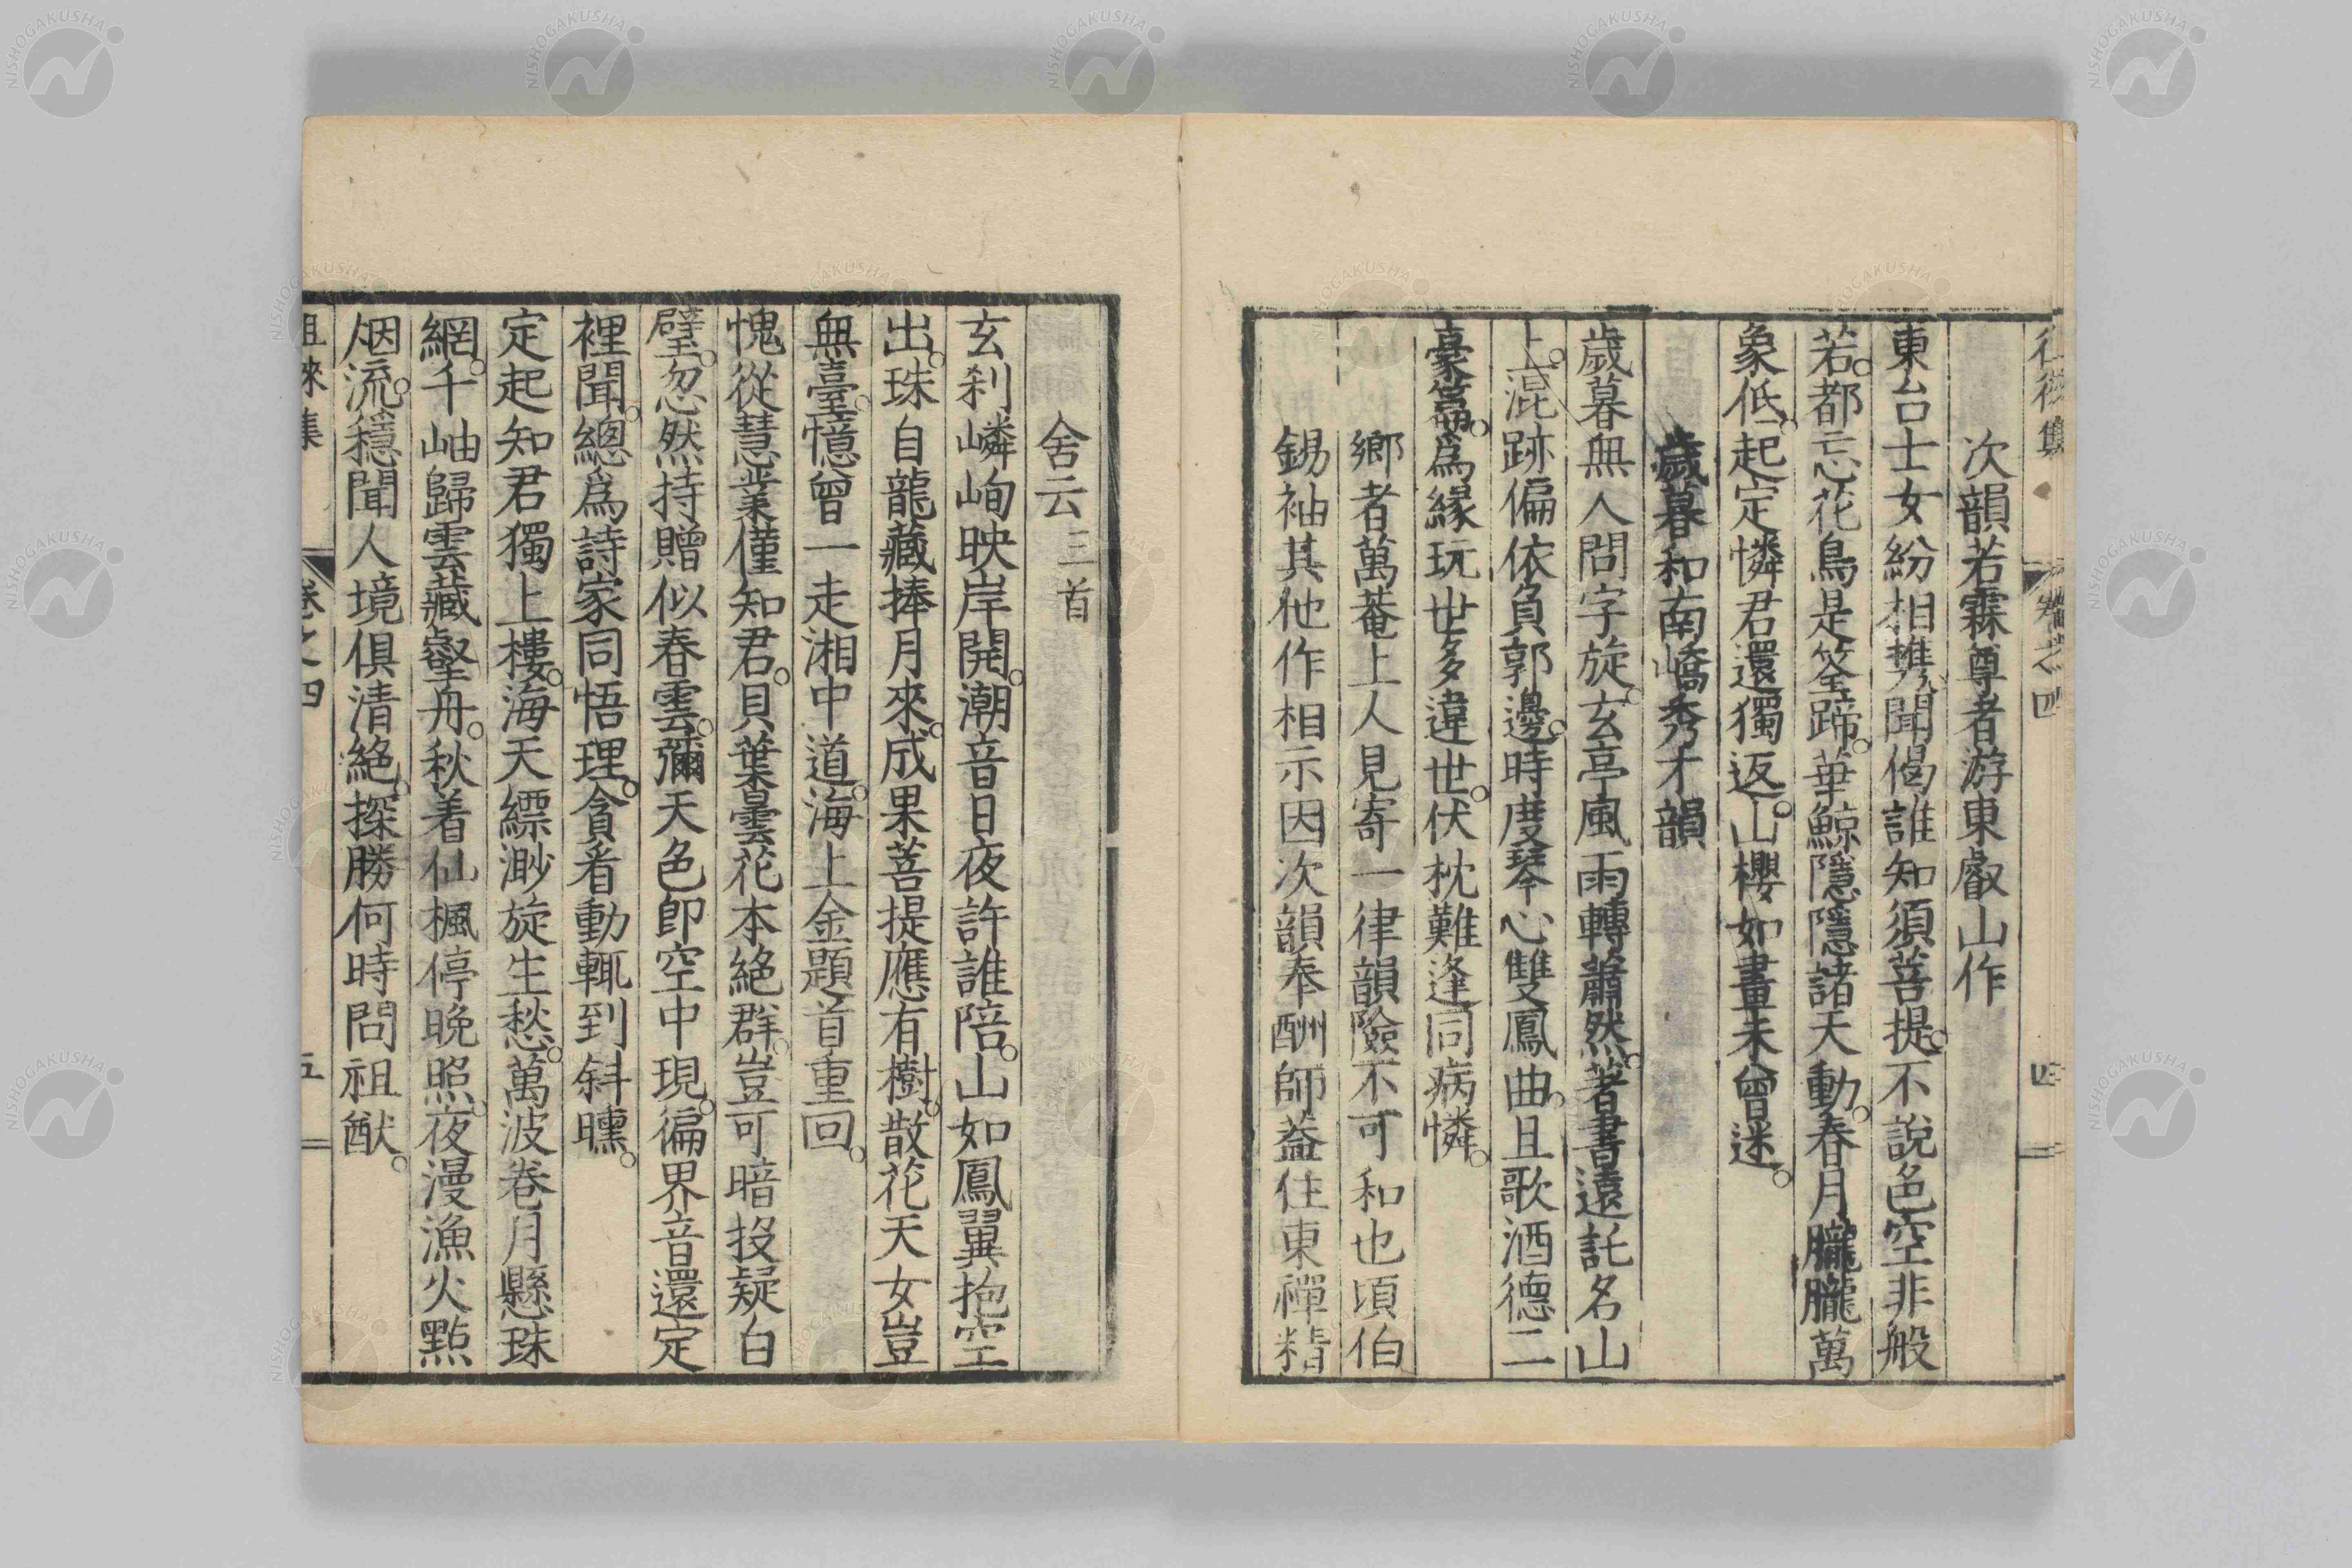 次韻若霖尊者游東叡山作
東台士女紛相携。聞偈誰知須菩提。不說色空非般
若。都忘花鳥是筌蹄。華鯨隱隱諸天動。春月朧朧萬
象低。起定憐君還獨返。山櫻如畫未曾迷。
歲暮和南嶠秀才韻
歲暮無人問字旋。玄亭風雨轉蕭然。著書遠託名山
上。混跡偏依負郭邊。時度琴心雙鳳曲。且歌酒德二
豪篇。爲緣玩世多違世。伏枕難逢同病憐。
鄉者萬菴上人見寄一律韻險不可和也頃伯
錫袖其他作相示因次韻奉酬師蓋住東禪精
舍云三首
玄刹嶙峋映岸開。潮音日夜許誰陪。山如鳳翼抱空
出。珠自龍藏捧月來。成果菩提應有樹。散花天女豈
無臺。憶曾一走湘中道。海上金題首重回。
愧從慧業僅知君。貝葉曇花本絕群。豈可暗投疑白
璧。忽然持贈似春雲。彌天色卽空中現。徧界音還定
裡聞。總爲詩家同悟理。貪看動輒到斜曛。
定起知君獨上樓。海天縹渺旋生愁。萬波卷月懸珠
網。千岫歸雲藏壑舟。秋着仙楓停晚照。夜漫漁火點
烟流。穩聞人境俱清絕。探勝何時問祖猷。
徂徠集
卷之四
五
卷之四
四
NISHOGAKUSHA